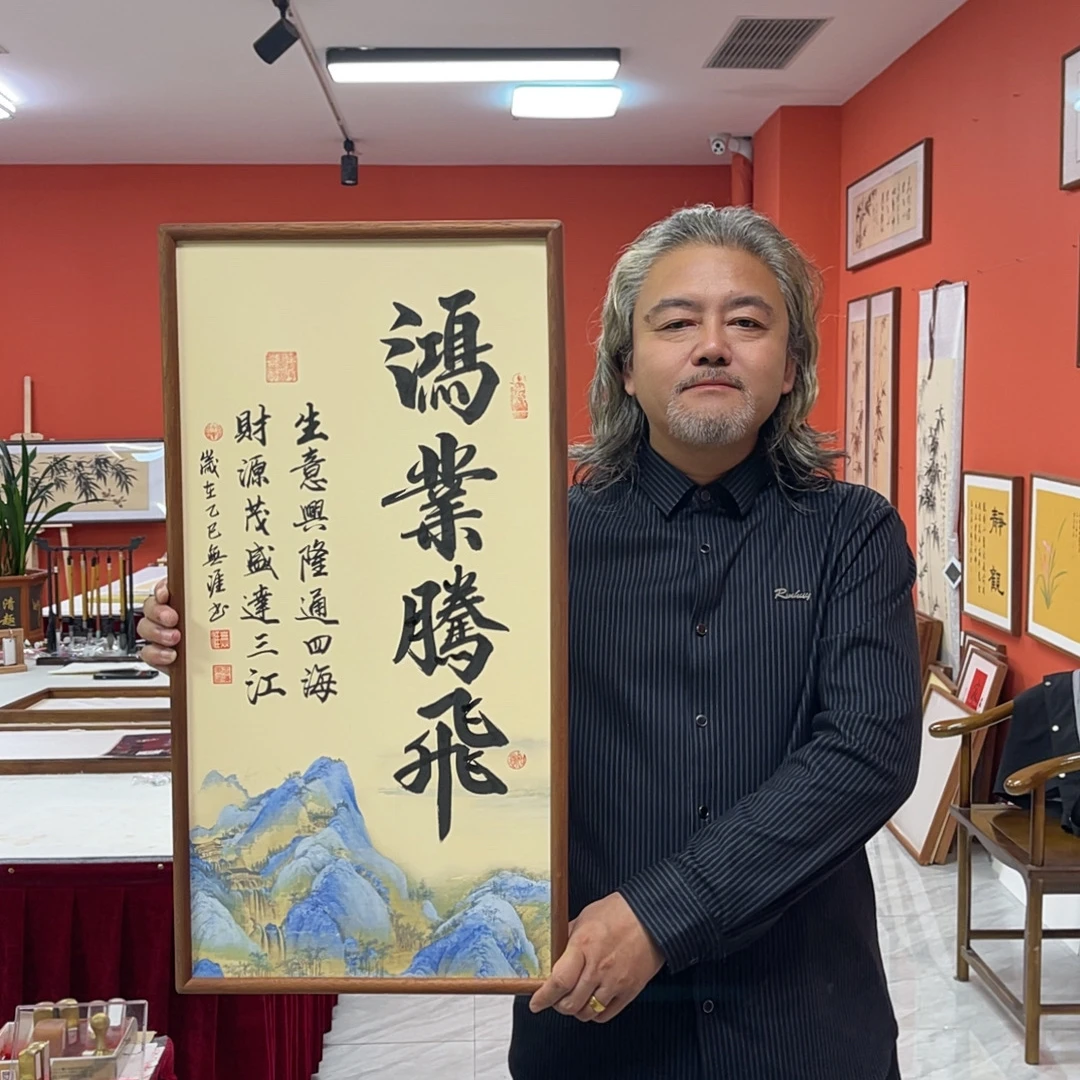 鴻業騰飛
生意興隆通四海
財源茂盛達三江
歲在乙巳無涯書
Renhuy
靜觀
清趣